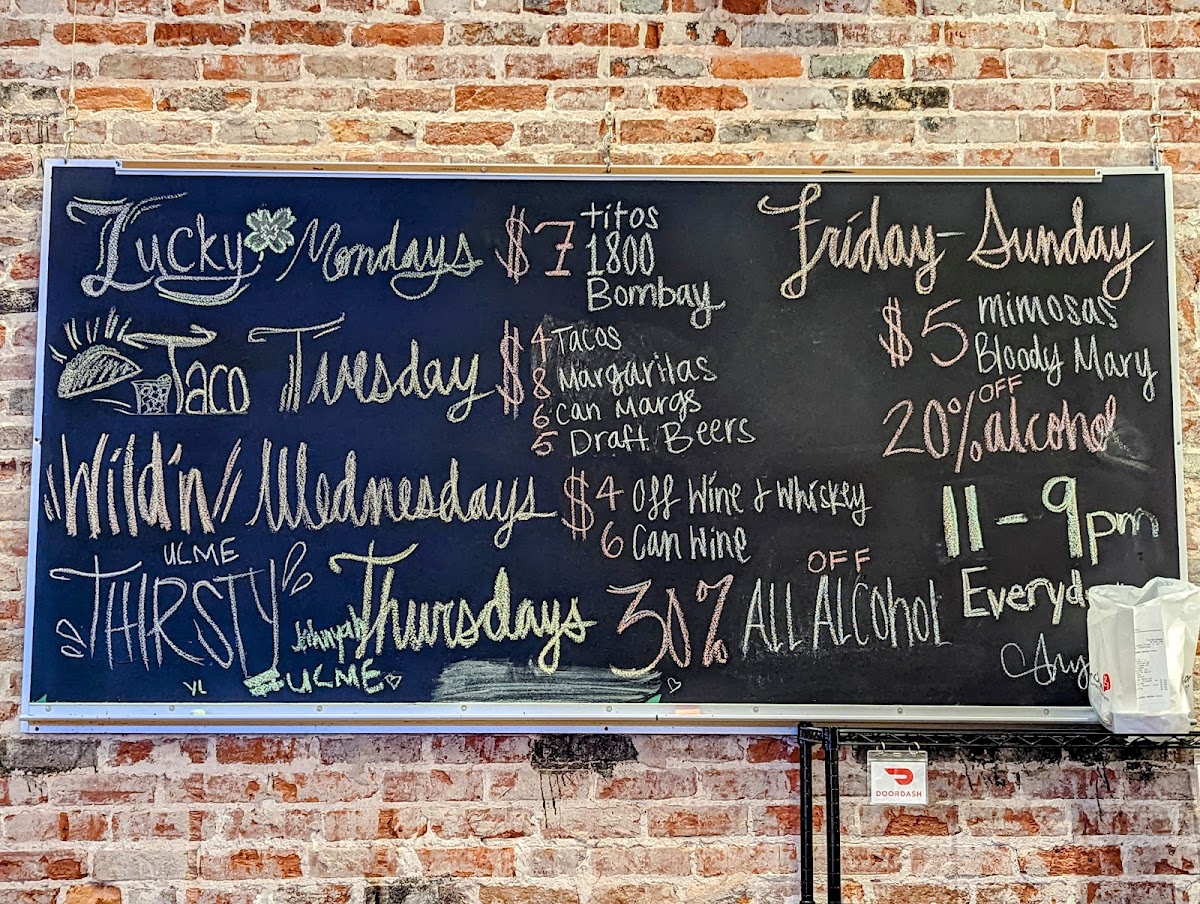 Lucky Mondays $7 titos
1800
Bombay
Taco Tuesday $4 Tacos
8 Margaritas
6 Can Margs
5 Draft Beers
Wild'n Wednesdays $4 Off Wine & Whiskey
6 Can Wine
UCME
THIRSTY Thursdays 30% OFF ALL ALCOHOL
UCME
Friday - Sunday
$5 mimosas
Bloody Mary
20% OFF alcohol
11 - 9pm
DOORDASH